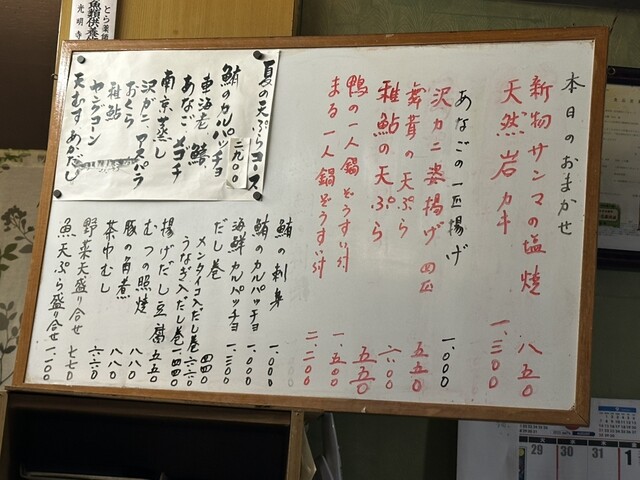 本日のおまかせ
新物サンマの塩焼 八五〇
天然岩カキ 一、三〇〇
あなごの一匹揚げ 一、〇〇〇
沢カニ姿揚げ 四匹 五五〇
舞茸の天ぷら 六〇〇
稚鮎の天ぷら 五五〇
鴨の一人鍋 ぞうすい付 一、五〇〇
まる一人鍋 ぞうすい付 二、二〇〇
夏の天ぷらコース 二九〇〇
鮪のカルパッチョ
車海老 鱚
あなご メゴチ
南京蒸し
沢ガニ アスパラ
おくら
稚鮎
ヤングコーン
天むす あかだし
鮪の刺身 一、〇〇〇
鮪のカルパッチョ 一、〇〇〇
海鮮カルパッチョ 一、三〇〇
だし巻 四四〇
メンタイコ入だし巻 六六〇
うなぎ入だし巻 一、四四〇
揚げだし豆腐 五五〇
むつの照焼 八八〇
豚の角煮 八八〇
茶碗むし
野菜天盛り合せ 七七〇
魚天ぷら盛り合せ 一、一〇〇
とら薬師
魚類供養
光明寺
30
31
1